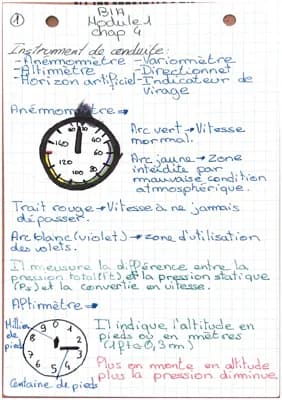 1
BIA
Module 1
chap 4
Instrument de conduite:
-Anémomètre -Variomètre
-Altimètre -Directionnel
-Horizon artificiel -Indicateur de
virage
Anémomètre
Arc vert → Vitesse
normal.
Arc jaune → zone
interdite par
mauvaise condition
atmosphérique.
160 60
140 80
120 100
Trait rouge → Vitesse à ne jamais
dépasser.
Arc blanc (violet) → zone d'utilisation
des volets.
Il mesure la différence entre la
pression total (Pt) et la pression statique
(Ps) et la convertie en vitesse.
Altimètre
Millier
de
pieds
0 1 2 3 4 5 6 7 8 9
Centaine de pieds
Il indique l'altitude en
pieds ou en mètres
(1ft = 0,3m)
Plus on monte en altitude
plus la pression diminue.